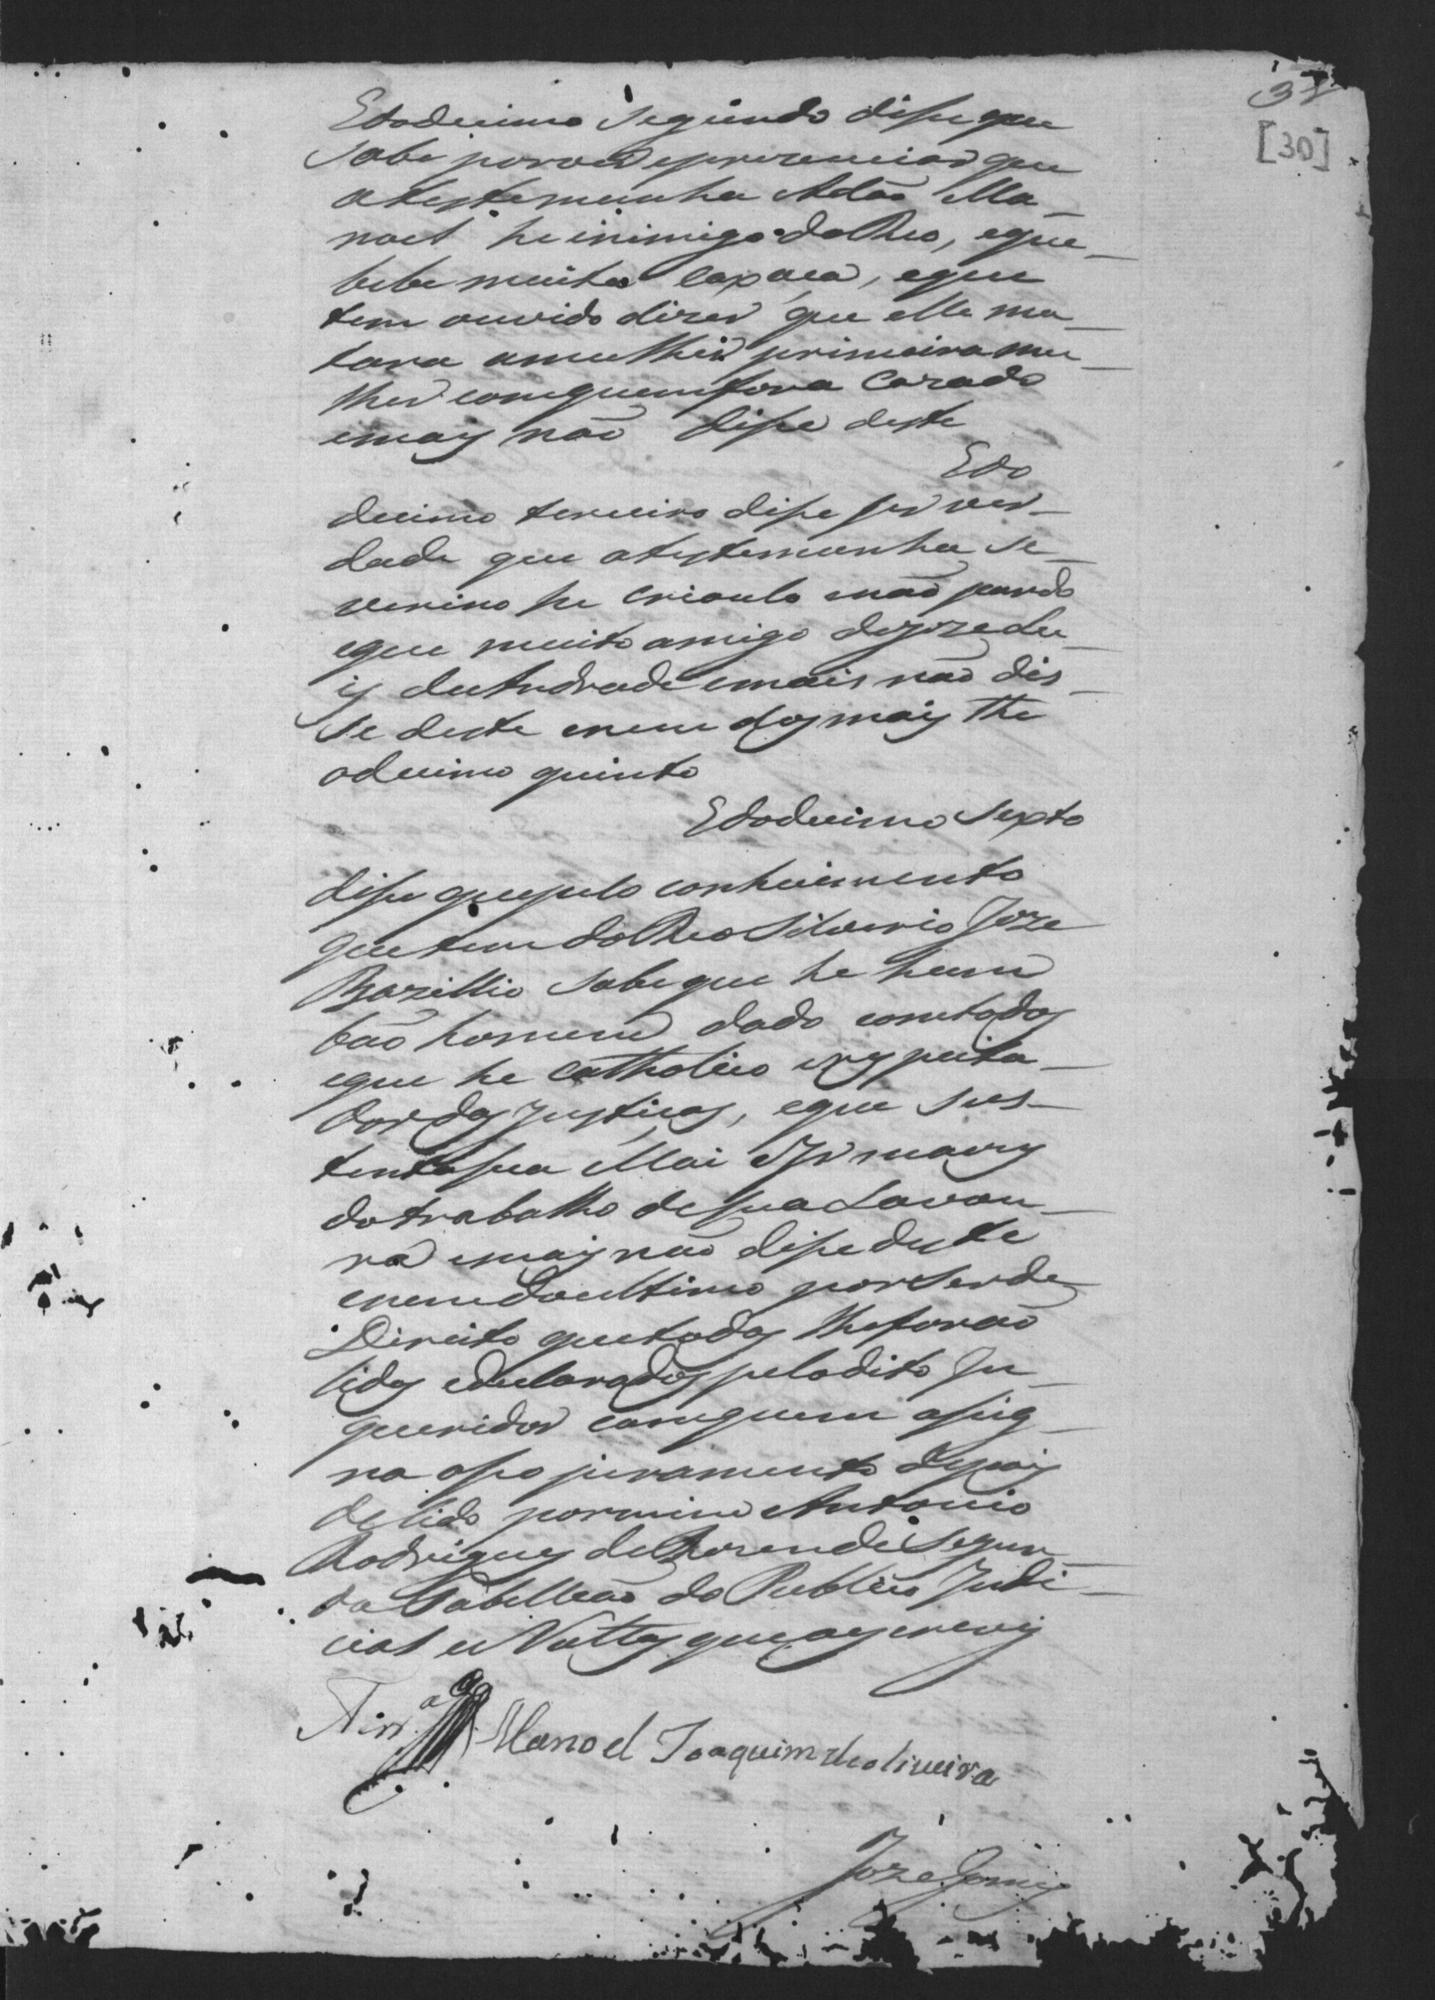 31
[30]
Edodecimo segundo dise que
sabe por ver eprezenciar que
a testemunha Adão Ma-
noel he inimigo do Reo, eque
bebe muita caxaca, eque
tem ouvido dizer que elle ma-
tara amulher primeira mu-
lher comquem fora Cazado
emays não dise deste
Edo
decimo terceiro dise ser ver-
dade que atestemunha Se-
verino he crioulo enão pardo
eque muito amigo deJoze Lu-
is deAndrade emais não dis-
se deste enem dos mays the
odecimo quinto
Edodecimo Sexto
dise quepelo conhecimento
que tem do Reo Silverio Joze
Bazillio Sabe que he hum
bão homem dado comtodos
eque he Catholico erespeita-
dor das Justicas, eque sus-
tenta sua Mai e Irmays
do trabalho de sua Lavou-
ra emays não dise deste
enem do ultimo por ser de
Direito que todos lhe forão
lidos edeclarados pelo dito In-
queridor comquem asig-
na oseo juramento depois
de lido por mim Antonio
Rodrigues deRezende Segun-
do Tabelleão do Publico Judi-
cial e Nottas que oescrevy
Manoel Joaquim deoliveira
Joze Gomes